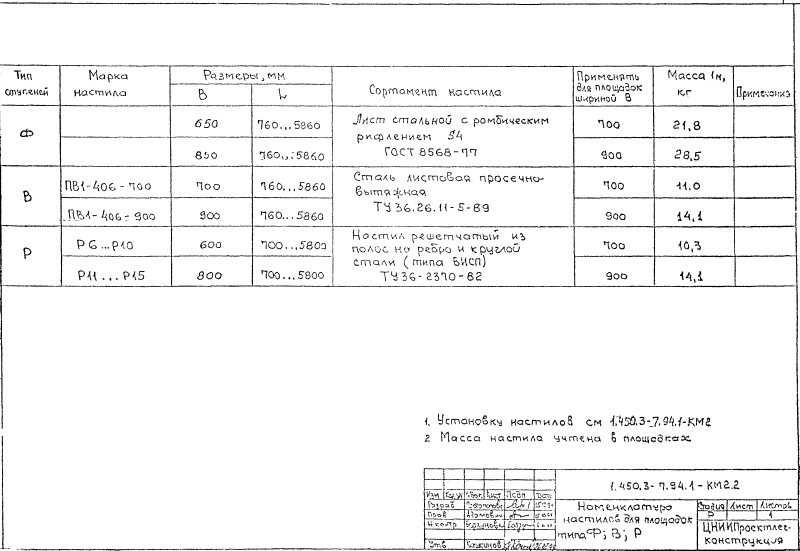 Тип ступеней
Марка настила
Размеры, мм
B
L
Сортамент настила
Применять для площадок шириной B
Масса 1м, кг
Примечание
Ф
650
760...5860
Лист стальной с ромбическим
рифлением S4
ГОСТ 8568-77
700
21,8
850
760...5860
900
28,5
В
ПВ1-406-700
700
760...5860
Сталь листовая просечно-
вытяжная
ТУ 36.26.11-5-89
700
11.0
ПВ1-406-900
900
760...5860
900
14,1
Р
Р6...Р10
600
700...5800
Настил решетчатый из
полос на ребро и круглой
стали (типа БИСП)
ТУ 36-2370-82
700
10,3
Р11...Р15
800
700...5800
900
14,1
1. Установку настилов см 1.450.3-7.94.1-КМ2
2 Масса настила учтена в площадках
1.450.3-7.94.1-КМ2.2
Изм
Лист
Дата
Разраб
Пров
Н контр
Утв
Номенклатура
настилов для площадок
типа Ф; В; Р
Стадия
Лист
Листов
Р
1
ЦНИИПроектлег-
конструкция